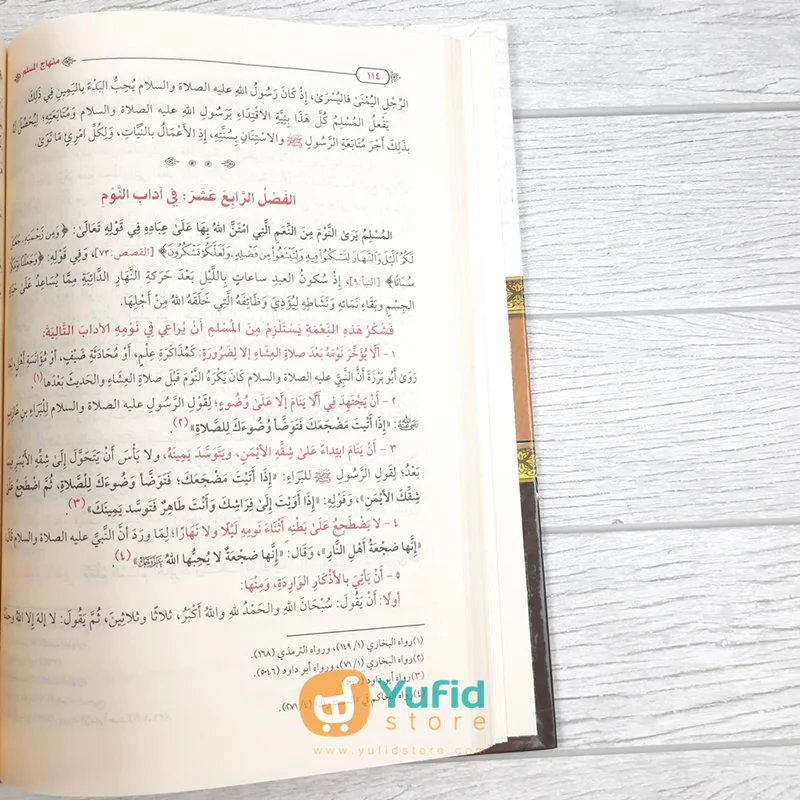 ١١٤
منهاج المسلم
الرِّجْلِ اليُمْنَىٰ فاليُسْرَىٰ، إِذْ كَانَ رَسُولُ اللهِ عليه الصلاة والسلام يُحِبُّ البَدْءَ باليَمِينِ فِي ذَلِكَ.
يَفْعَلُ المُسْلِمُ كُلَّ هَذَا بِنِيَّةِ الاقْتِدَاءِ بَرَسُولِ اللهِ عليه الصلاة والسلام وَمُتَابَعَتِهِ؛ لِيُحَصِّلَ
بذَلِكَ أَجْرَ مُتَابَعَةِ الرَّسُولِ ﷺ والاسْتِنَانِ بِسُنَّتِهِ، إِذِ الأَعْمَالُ بالنِّيَّاتِ، وَلِكُلِّ امْرِئٍ مَا نَوَىٰ.
الفَصْلُ الرَّابِعَ عَشَرَ: فِي آدَابِ النَّوْمِ
المُسْلِمُ يَرَىٰ النَّوْمَ مِنَ النِّعَمِ الَّتِي امْتَنَّ اللهُ بِهَا عَلَىٰ عِبَادِهِ فِي قَوْلِهِ تَعَالَىٰ: ﴿وَمِن رَّحْمَتِهِ جَعَلَ
لَكُمُ اللَّيْلَ وَالنَّهَارَ لِتَسْكُنُوا فِيهِ وَلِتَبْتَغُوا مِن فَضْلِهِ وَلَعَلَّكُمْ تَشْكُرُونَ﴾ [القصص:٧٣]، وَفِي قَوْلِهِ: ﴿وَجَعَلْنَا نَوْمَكُمْ
سُبَاتًا﴾ [النبأ:٩]، إِذْ سُكونُ العبدِ ساعاتٍ باللَّيْلِ بَعْدَ حَرَكَةِ النَّهَارِ الدَّائِبَةِ مِمَّا يُسَاعِدُ عَلَىٰ
الجِسْمِ وبَقَاءِ نَمَائِهِ وَنَشَاطِهِ لِيُؤَدِّيَ وَظَائِفَهُ الَّتِي خَلَقَهُ اللهُ مِنْ أَجْلِهَا.
فَشُكْرُ هَذِهِ النِّعْمَةِ يَسْتَلْزِمُ مِنَ المُسْلِمِ أَنْ يُرَاعِيَ فِي نَوْمِهِ الآدَابَ التَّالِيَةَ:
١- أَلَّا يُؤَخِّرَ نَوْمَهُ بَعْدَ صلاةِ العِشَاءِ إِلا لِضَرُورَةٍ: كَمُذَاكَرَةِ عِلْمٍ، أَوْ مُحَادَثَةِ ضَيْفٍ، أَوْ مُؤَانَسَةِ أَهْلٍ،
رَوَىٰ أَبُو بَرْزَةَ أَنَّ النَّبِيَّ عليه الصلاة والسلام كَانَ يَكْرَهُ النَّوْمَ قَبْلَ صلاةِ العِشَاءِ والحَدِيثَ بَعْدَهَا(١).
٢- أَنْ يَجْتَهِدَ فِي أَلَّا يَنَامَ إِلَّا عَلَىٰ وُضُوءٍ؛ لِقَوْلِ الرَّسُولِ عليه الصلاة والسلام لِلْبَرَاءِ بنِ عَازِبٍ
: «إِذَا أَتَيْتَ مَضْجَعَكَ فَتَوَضَّأْ وُضُوءَكَ لِلصَّلاةِ»(٢).
٣- أَنْ يَنَامَ ابتِدَاءً عَلَىٰ شِقِّهِ الأَيْمَنِ، ويَتَوَسَّدَ يَمِينَهُ، ولا بَأْسَ أَنْ يَتَحَوَّلَ إِلَىٰ شِقِّهِ الأَيْسَرِ
بَعْدُ؛ لِقَولِ الرَّسُولِ ﷺ للبَرَاءِ: «إِذَا أَتَيْتَ مَضْجَعَكَ؛ فَتَوَضَّأْ وَضُوءَكَ لِلصَّلاةِ، ثُمَّ اضْطَجِعْ عَلَىٰ
شِقِّكَ الأَيْمَنِ»، وَقَوْلِهِ: «إِذَا أَوَيْتَ إِلَىٰ فِرَاشِكَ وَأَنْتَ طَاهِرٌ فَتَوَسَّدْ يَمِينَكَ»(٣).
٤- لا يَضْطَجِعُ عَلَىٰ بَطْنِهِ أَثْنَاءَ نَومِهِ لَيْلًا ولا نَهَارًا؛ لِمَا وردَ أَنَّ النَّبِيَّ عليه الصلاة والسلام قَالَ:
«إِنَّها ضَجْعَةُ أَهْلِ النَّارِ»، وَقَالَ: «إِنَّها ضَجْعَةٌ لا يُحِبُّها اللهُ ﷿»(٤).
٥- أَنْ يَأْتِيَ بالأَذْكَارِ الوَارِدَةِ، وَمِنْهَا:
أولًا: أَنْ يَقُولَ: سُبْحَانَ اللهِ والحَمْدُ للهِ واللهُ أَكْبَرُ، ثلاثًا وثلاثِينَ، ثُمَّ يَقُولَ: لا إِلهَ إِلا اللهُ وحدَهُ
(١) رواه البخاري (١/ ١٤٩)، ورواه الترمذي (١٦٨).
(٢) رواه البخاري (١/ ٧١)، ورواه أبو داود (٥٠٤٦).
(٣) رواه أبو داود
(٤) رواه الحاكم في (٤/ ٢٧١).
Yufid
store
www.yufidstore.com